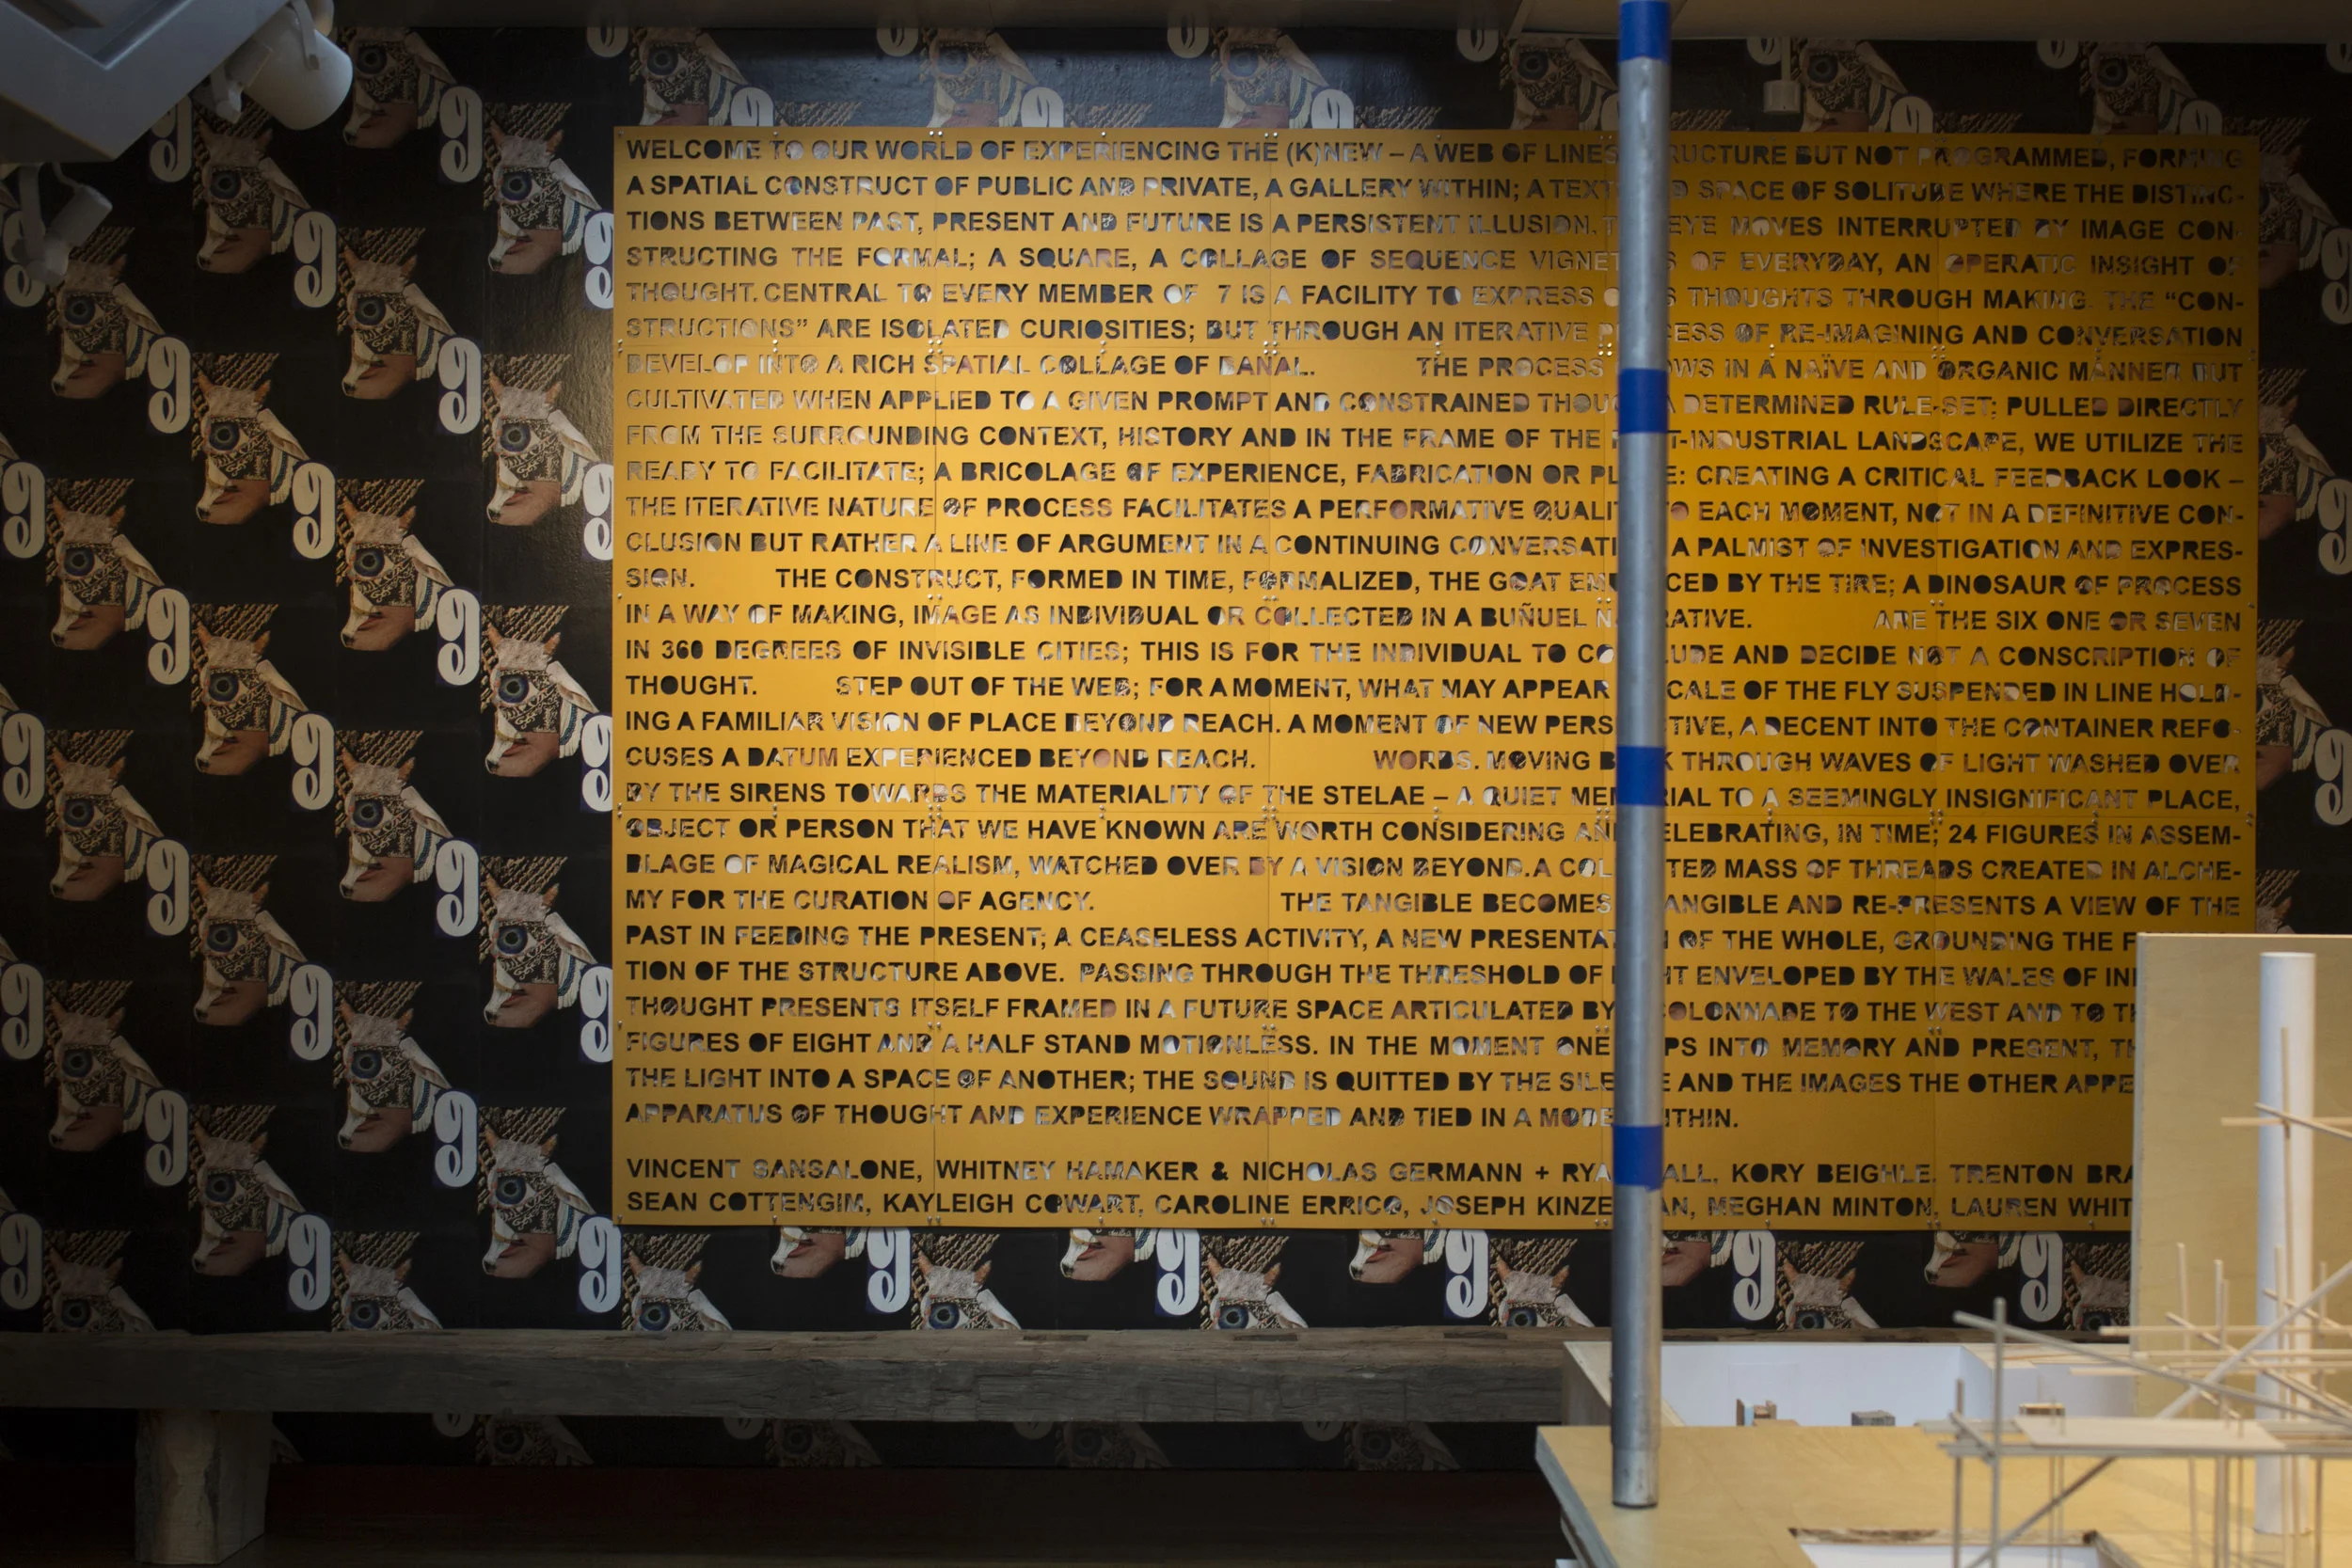 WELCOME TO OUR WORLD OF EXPERIENCING THE (K)NEW – A WEB OF LINES RUCTURE BUT NOT PROGRAMMED, FORMING
A SPATIAL CONSTRUCT OF PUBLIC AND PRIVATE, A GALLERY WITHIN; A TEXT D SPACE OF SOLITUDE WHERE THE DISTINC-
TIONS BETWEEN PAST, PRESENT AND FUTURE IS A PERSISTENT ILLUSION. EYE MOVES INTERRUPTED BY IMAGE CON-
STRUCTING THE FORMAL; A SQUARE, A COLLAGE OF SEQUENCE VIGNET S OF EVERYDAY, AN OPERATIC INSIGHT OF
THOUGHT. CENTRAL TO EVERY MEMBER OF 7 IS A FACILITY TO EXPRESS THOUGHTS THROUGH MAKING. THE “CON-
STRUCTIONS” ARE ISOLATED CURIOSITIES; BUT THROUGH AN ITERATIVE P ESS OF RE-IMAGINING AND CONVERSATION
DEVELOP INTO A RICH SPATIAL COLLAGE OF BANAL. THE PROCESS OWS IN A NAÏVE AND ORGANIC MANNER BUT
CULTIVATED WHEN APPLIED TO A GIVEN PROMPT AND CONSTRAINED THOU A DETERMINED RULE-SET; PULLED DIRECTLY
FROM THE SURROUNDING CONTEXT, HISTORY AND IN THE FRAME OF THE T-INDUSTRIAL LANDSCAPE, WE UTILIZE THE
READY TO FACILITATE; A BRICOLAGE OF EXPERIENCE, FABRICATION OR PL E: CREATING A CRITICAL FEEDBACK LOOK –
THE ITERATIVE NATURE OF PROCESS FACILITATES A PERFORMATIVE QUALI O EACH MOMENT, NOT IN A DEFINITIVE CON-
CLUSION BUT RATHER A LINE OF ARGUMENT IN A CONTINUING CONVERSATI A PALMIST OF INVESTIGATION AND EXPRES-
SION. THE CONSTRUCT, FORMED IN TIME, FORMALIZED, THE GOAT EM CED BY THE TIRE; A DINOSAUR OF PROCESS
IN A WAY OF MAKING, IMAGE AS INDIVIDUAL OR COLLECTED IN A BUÑUEL N RATIVE. ARE THE SIX ONE OR SEVEN
IN 360 DEGREES OF INVISIBLE CITIES; THIS IS FOR THE INDIVIDUAL TO CO LUDE AND DECIDE NOT A CONSCRIPTION OF
THOUGHT. STEP OUT OF THE WEB; FOR A MOMENT, WHAT MAY APPEAR CALE OF THE FLY SUSPENDED IN LINE HOLD-
ING A FAMILIAR VISION OF PLACE BEYOND REACH. A MOMENT OF NEW PERS TIVE, A DECENT INTO THE CONTAINER REFO-
CUSES A DATUM EXPERIENCED BEYOND REACH. WORDS. MOVING B K THROUGH WAVES OF LIGHT WASHED OVER
BY THE SIRENS TOWARDS THE MATERIALITY OF THE STELAE – A QUIET MEM RIAL TO A SEEMINGLY INSIGNIFICANT PLACE,
OBJECT OR PERSON THAT WE HAVE KNOWN ARE WORTH CONSIDERING AND ELEBRATING, IN TIME; 24 FIGURES IN ASSEM-
BLAGE OF MAGICAL REALISM, WATCHED OVER BY A VISION BEYOND. A COL TED MASS OF THREADS CREATED IN ALCHE-
MY FOR THE CURATION OF AGENCY. THE TANGIBLE BECOMES ANGIBLE AND RE-PRESENTS A VIEW OF THE
PAST IN FEEDING THE PRESENT; A CEASELESS ACTIVITY, A NEW PRESENTA OF THE WHOLE, GROUNDING THE F
TION OF THE STRUCTURE ABOVE. PASSING THROUGH THE THRESHOLD OF HT ENVELOPED BY THE WALES OF IN
THOUGHT PRESENTS ITSELF FRAMED IN A FUTURE SPACE ARTICULATED BY OLONNADE TO THE WEST AND TO TH
FIGURES OF EIGHT AND A HALF STAND MOTIONLESS. IN THE MOMENT ONE PS INTO MEMORY AND PRESENT, TH
THE LIGHT INTO A SPACE OF ANOTHER; THE SOUND IS QUITTED BY THE SILE E AND THE IMAGES THE OTHER APPE
APPARATUS OF THOUGHT AND EXPERIENCE WRAPPED AND TIED IN A MODE ITHIN.
VINCENT SANSALONE, WHITNEY HAMAKER & NICHOLAS GERMANN + RYA ALL, KORY BEIGHLE. TRENTON BRA
SEAN COTTENGIM, KAYLEIGH COWART, CAROLINE ERRICO, JOSEPH KINZE AN, MEGHAN MINTON, LAUREN WHIT